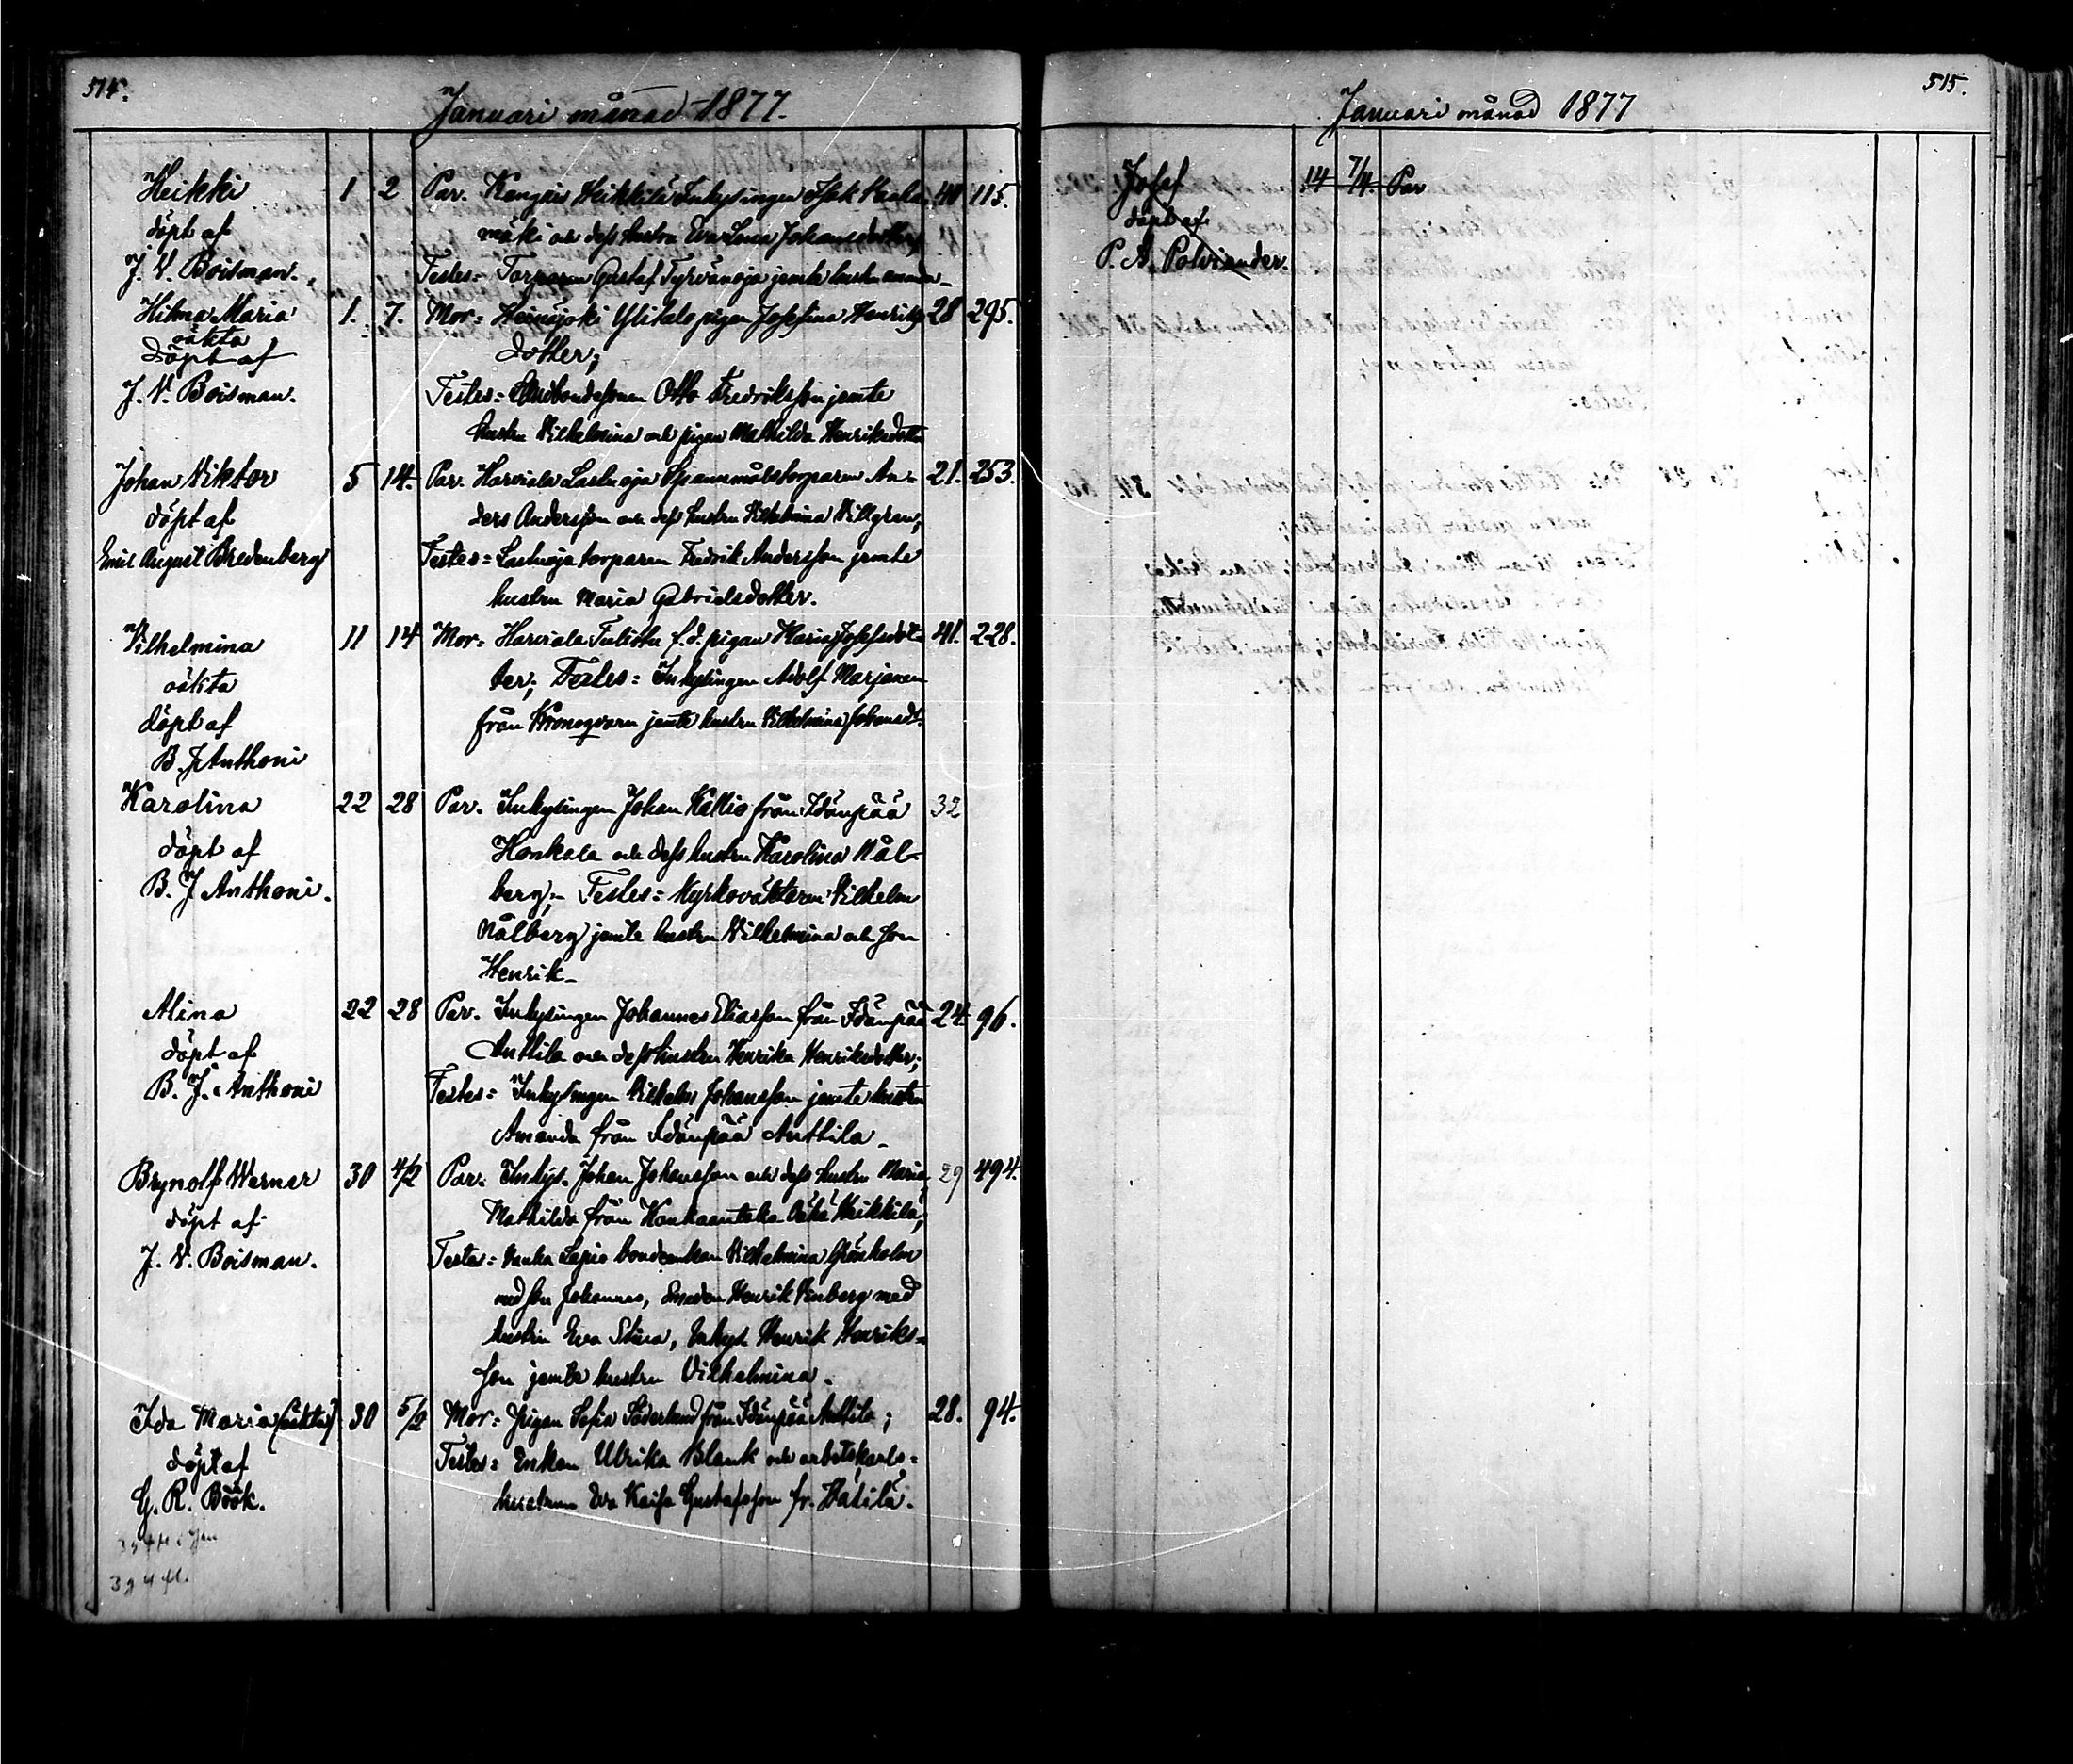 514.
Januari månad 1877.
Heikki 1 2 Par. Kangais Heikkilä Inhysingen Isak
döpt af mäki och dess hustru Eva Lena Johansdotter;
J. V. Boisman. Testes: Torparen Gustaf Tyrvänoja jemte hustru
Hilma Maria 1. 7. Mor: Heinijoki Ylitalo pigan Josefina Henriks 28 295.
oäkta dotter;
döpt af
J. V. Boisman. Testes: Otto Fredriksson jemte
hustru Vilhelmina och pigan Mathilda Henriksdotter
Johan Viktor 5 14. Par. Harviala torparen An- 21. 253.
döpt af ders Andersson och dess hustru Vilhelmina Villgren;
Emil August Bredenberg Testes: torparen Fredrik Andersson jemte
hustru Maria Gabrielsdotter.
Vilhelmina 11 14 Mor: Harviala f.d. pigan Maria Josefsdot- 41. 228.
oäkta ter; Testes: Inhysingen Adolf Marjanen
döpt af från Kronoqvarn jemte hustru Vilhelmina Johansdr.
B. J Anthoni
Karolina 22 28 Par. Inhysingen Johan Kallio från Idänpää 32
döpt af Honkala och dess hustru Karolina Nål-
B. J Anthoni. berg;- Testes: Kyrkovaktaren Vilhelm
Nålberg jemte hustru Vilhelmina och son
Henrik-
Alina 22 28 Par. Inhysingen Johannes Eliasson från Idänpää 24 96.
döpt af Anttila och dess hustru Henrika Henriksdotter;
B. J. Anthoni Testes: Inhysingen Vilhelm Johansson jemte hustru
Amanda från Idänpää Anttila-
Brynolf Werner 30 4/2 Par. Inhys. Johan Johansson och dess hustru Maria 29 494.
döpt af Mathilda från Heikkilä;
J. V. Boisman. Testes: Lepis bondeenkan Vilhelmina Grönholm
med son Johannes, Smeden Henrik Vinberg med
hustru Eva Stina, Inhys. Henrik Henriks-
son jemte hustru Vilhelmina.
Ida Maria (oäkta) 30 5/2 Mor: pigan Sofia Söderlund från Idänpää Anttila; 28. 94.
döpt af Testes: Enkan Ulrika Blank och arbetskarls-
G. R. Böök. hustrun Eva Kaisa Gustafsson fr. Hätilä.
515.
Januari månad 1877
Josef 14 7/4. Par
döpt af
P. A. Polviander.